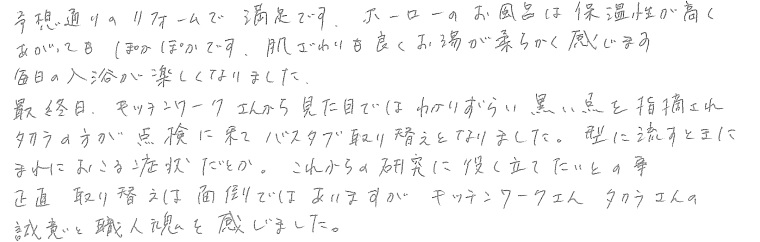 予想通りのリフォームで満足です。ホーローのお風呂は保温性が高く
あがっても ぽかぽかです。肌ざわりも良くお湯が柔らかく感じます
毎日の入浴が楽しくなりました。
最終日、キッチンワークさんから見た目ではわかりずらい黒い点を指摘され
タカラの方が点検に来てバスタブ取り替えとなりました。型に流すときに
まれにおこる症状だとか。これからの研究に役し立てたいとの事
正直 取り替えは面倒ではありますが キッチンワークさん タカラさんの
誠意と職人魂を感じました。